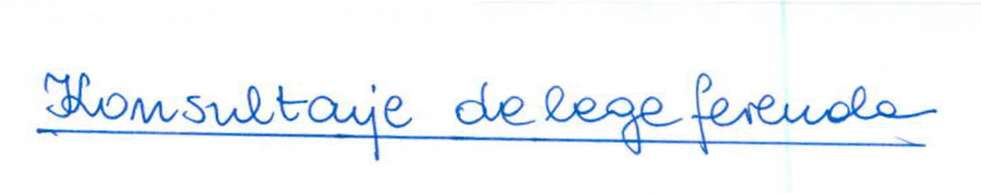 Konsultacje de lege ferenda